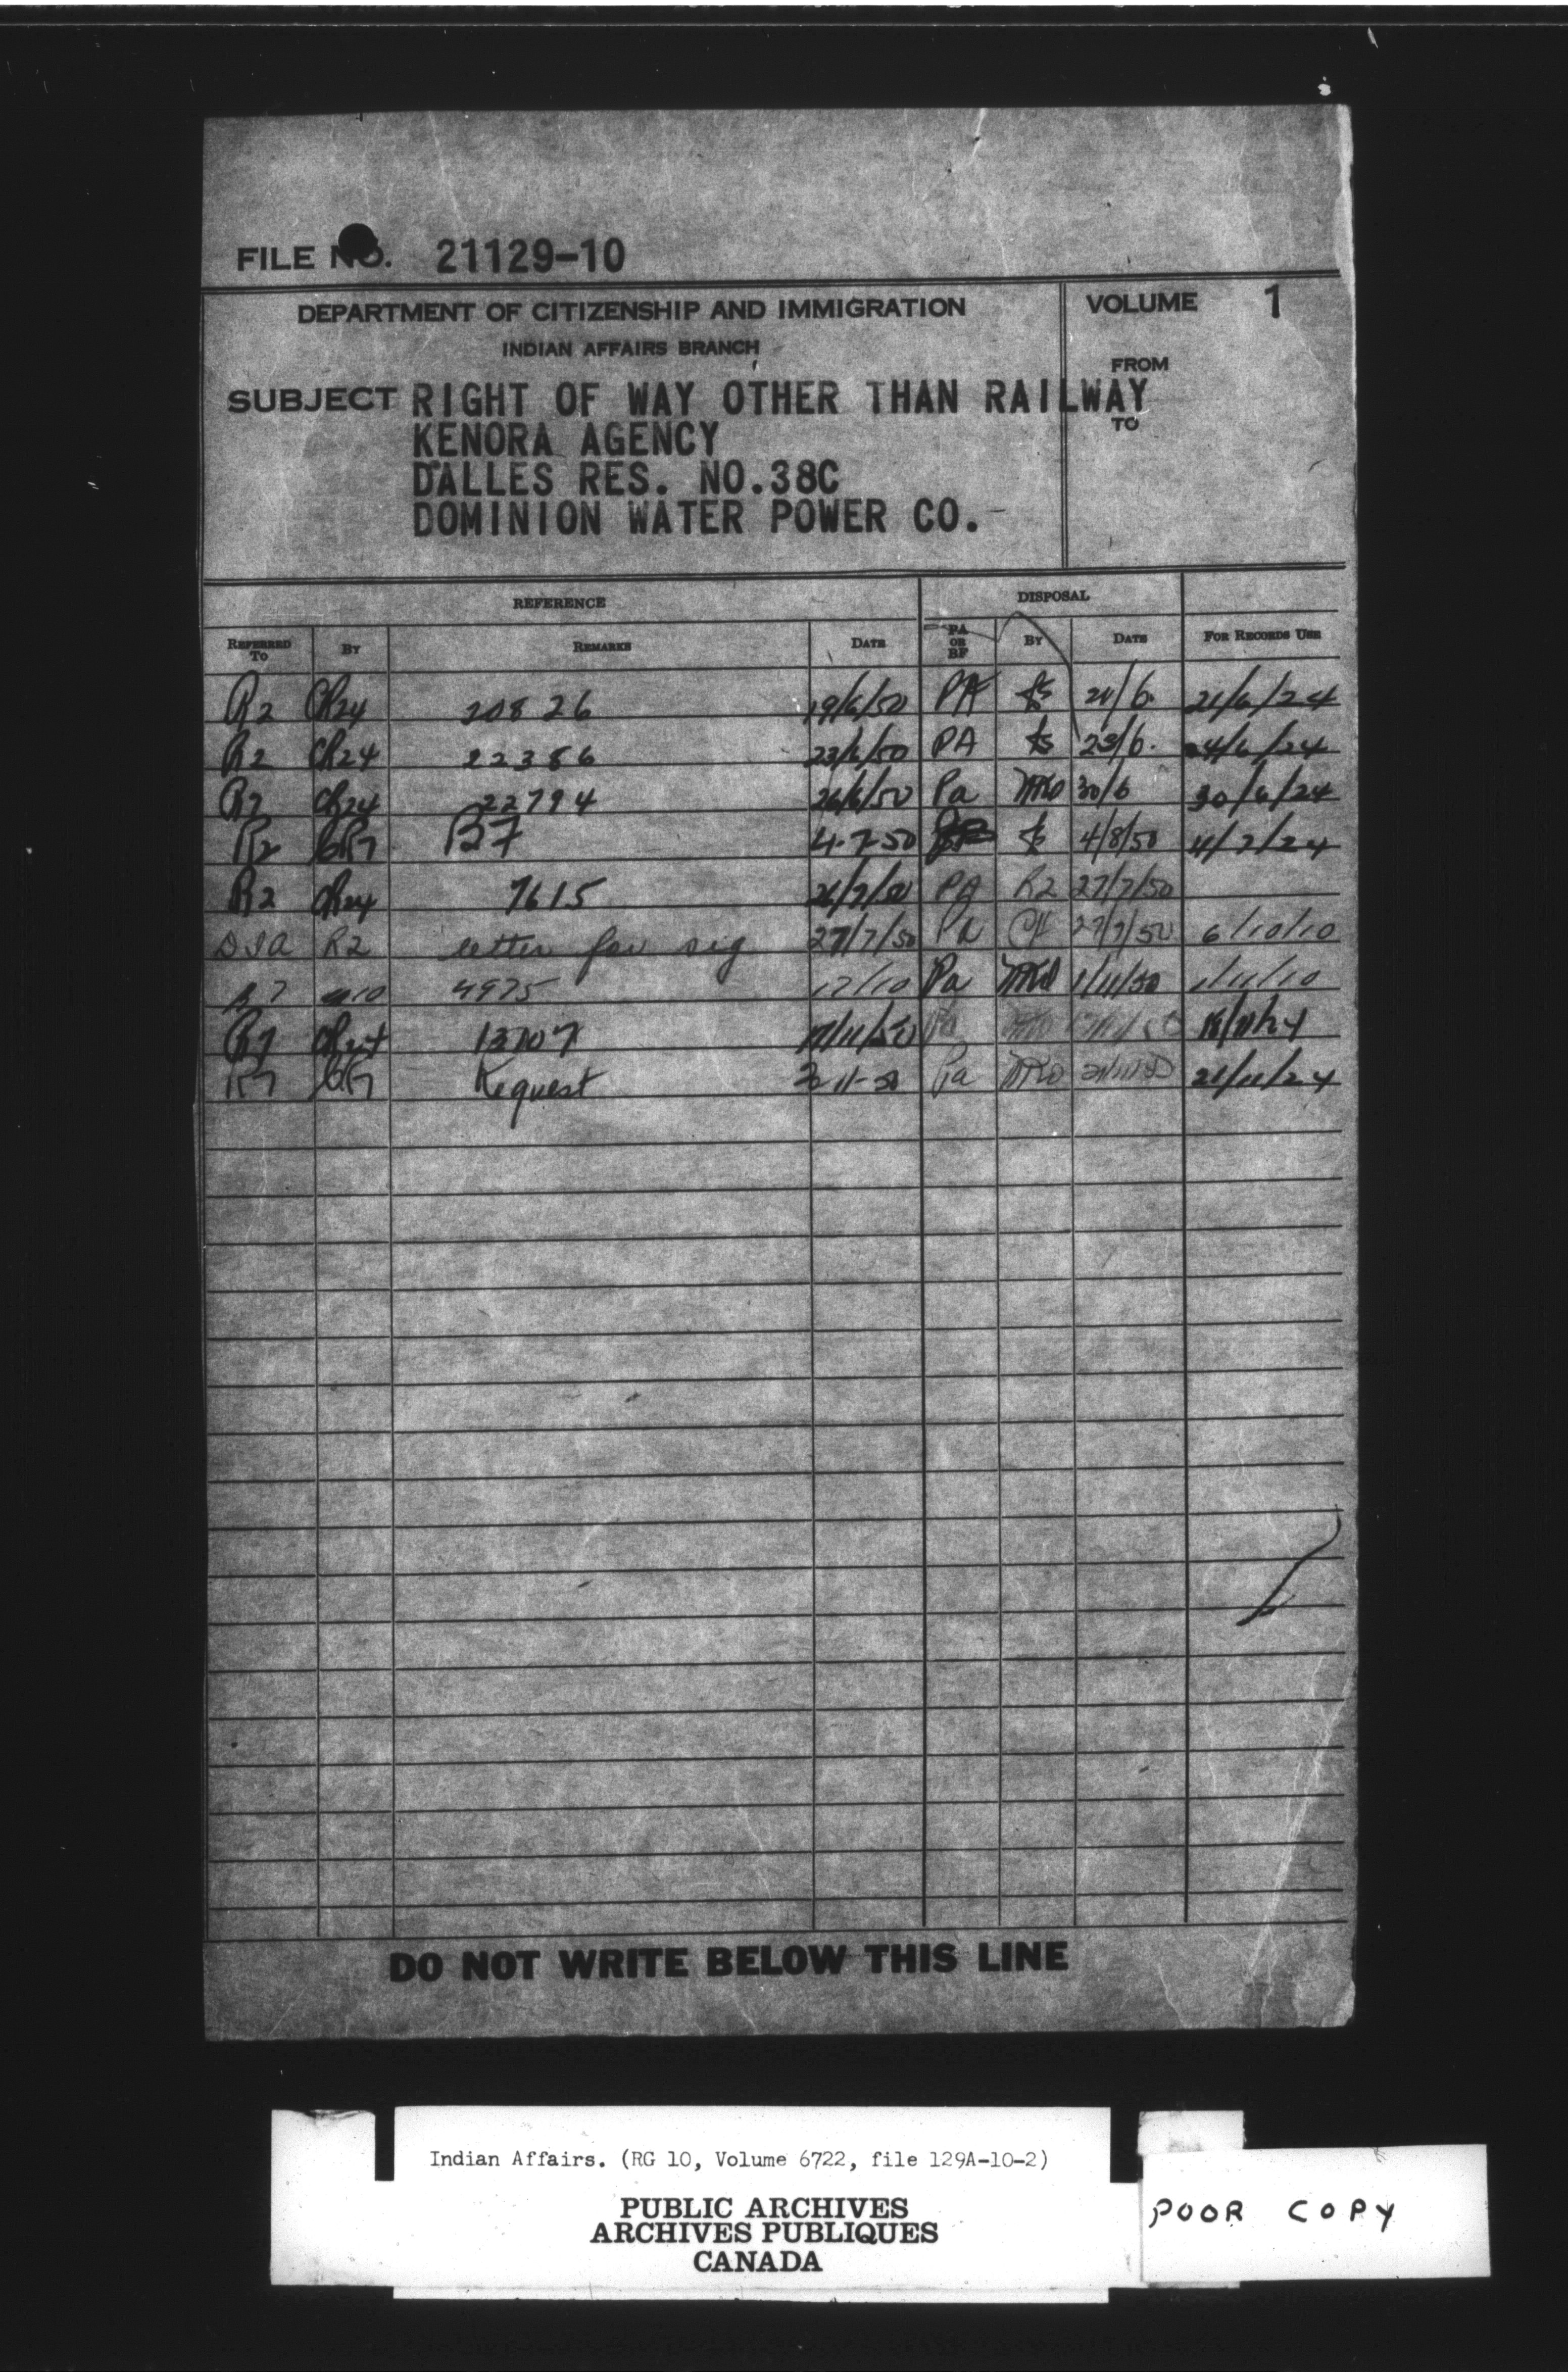 FILE NO. 21129-10
DEPARTMENT OF CITIZENSHIP AND IMMIGRATION
INDIAN AFFAIRS BRANCH
VOLUME 1
FROM
TO
SUBJECT RIGHT OF WAY OTHER THAN RAILWAY
KENORA AGENCY
DALLES RES. NO.38C
DOMINION WATER POWER CO.
REFERENCE DISPOSAL
REFERRED TO BY REMARKS DATE PA OR BF BY DATE FOR RECORDS USE
R2 CR24 20826 19/6/50 PA 21/6/24
R2 CR24 22386 23/6/50 PA 23/6. 24/6/24
R7 CR24 22794 26/6/50 Pa 30/6 30/6/24
R2 BF 4-7-50 4/8/50 4/7/24
R2 CR24 7615 26/7/50 PA R2 27/7/50
DIA R2 letter for sig 27/7/50 PA 27/7/50 6/10/10
R7 4975 17/10 Pa 1/11/50 1/11/10
R7 CR24 13707 17/11/50 18/11/24
R7 Request Pa 21/11/24
DO NOT WRITE BELOW THIS LINE
Indian Affairs. (RG 10, Volume 6722, file 129A-10-2)
PUBLIC ARCHIVES
ARCHIVES PUBLIQUES
CANADA
POOR COPY